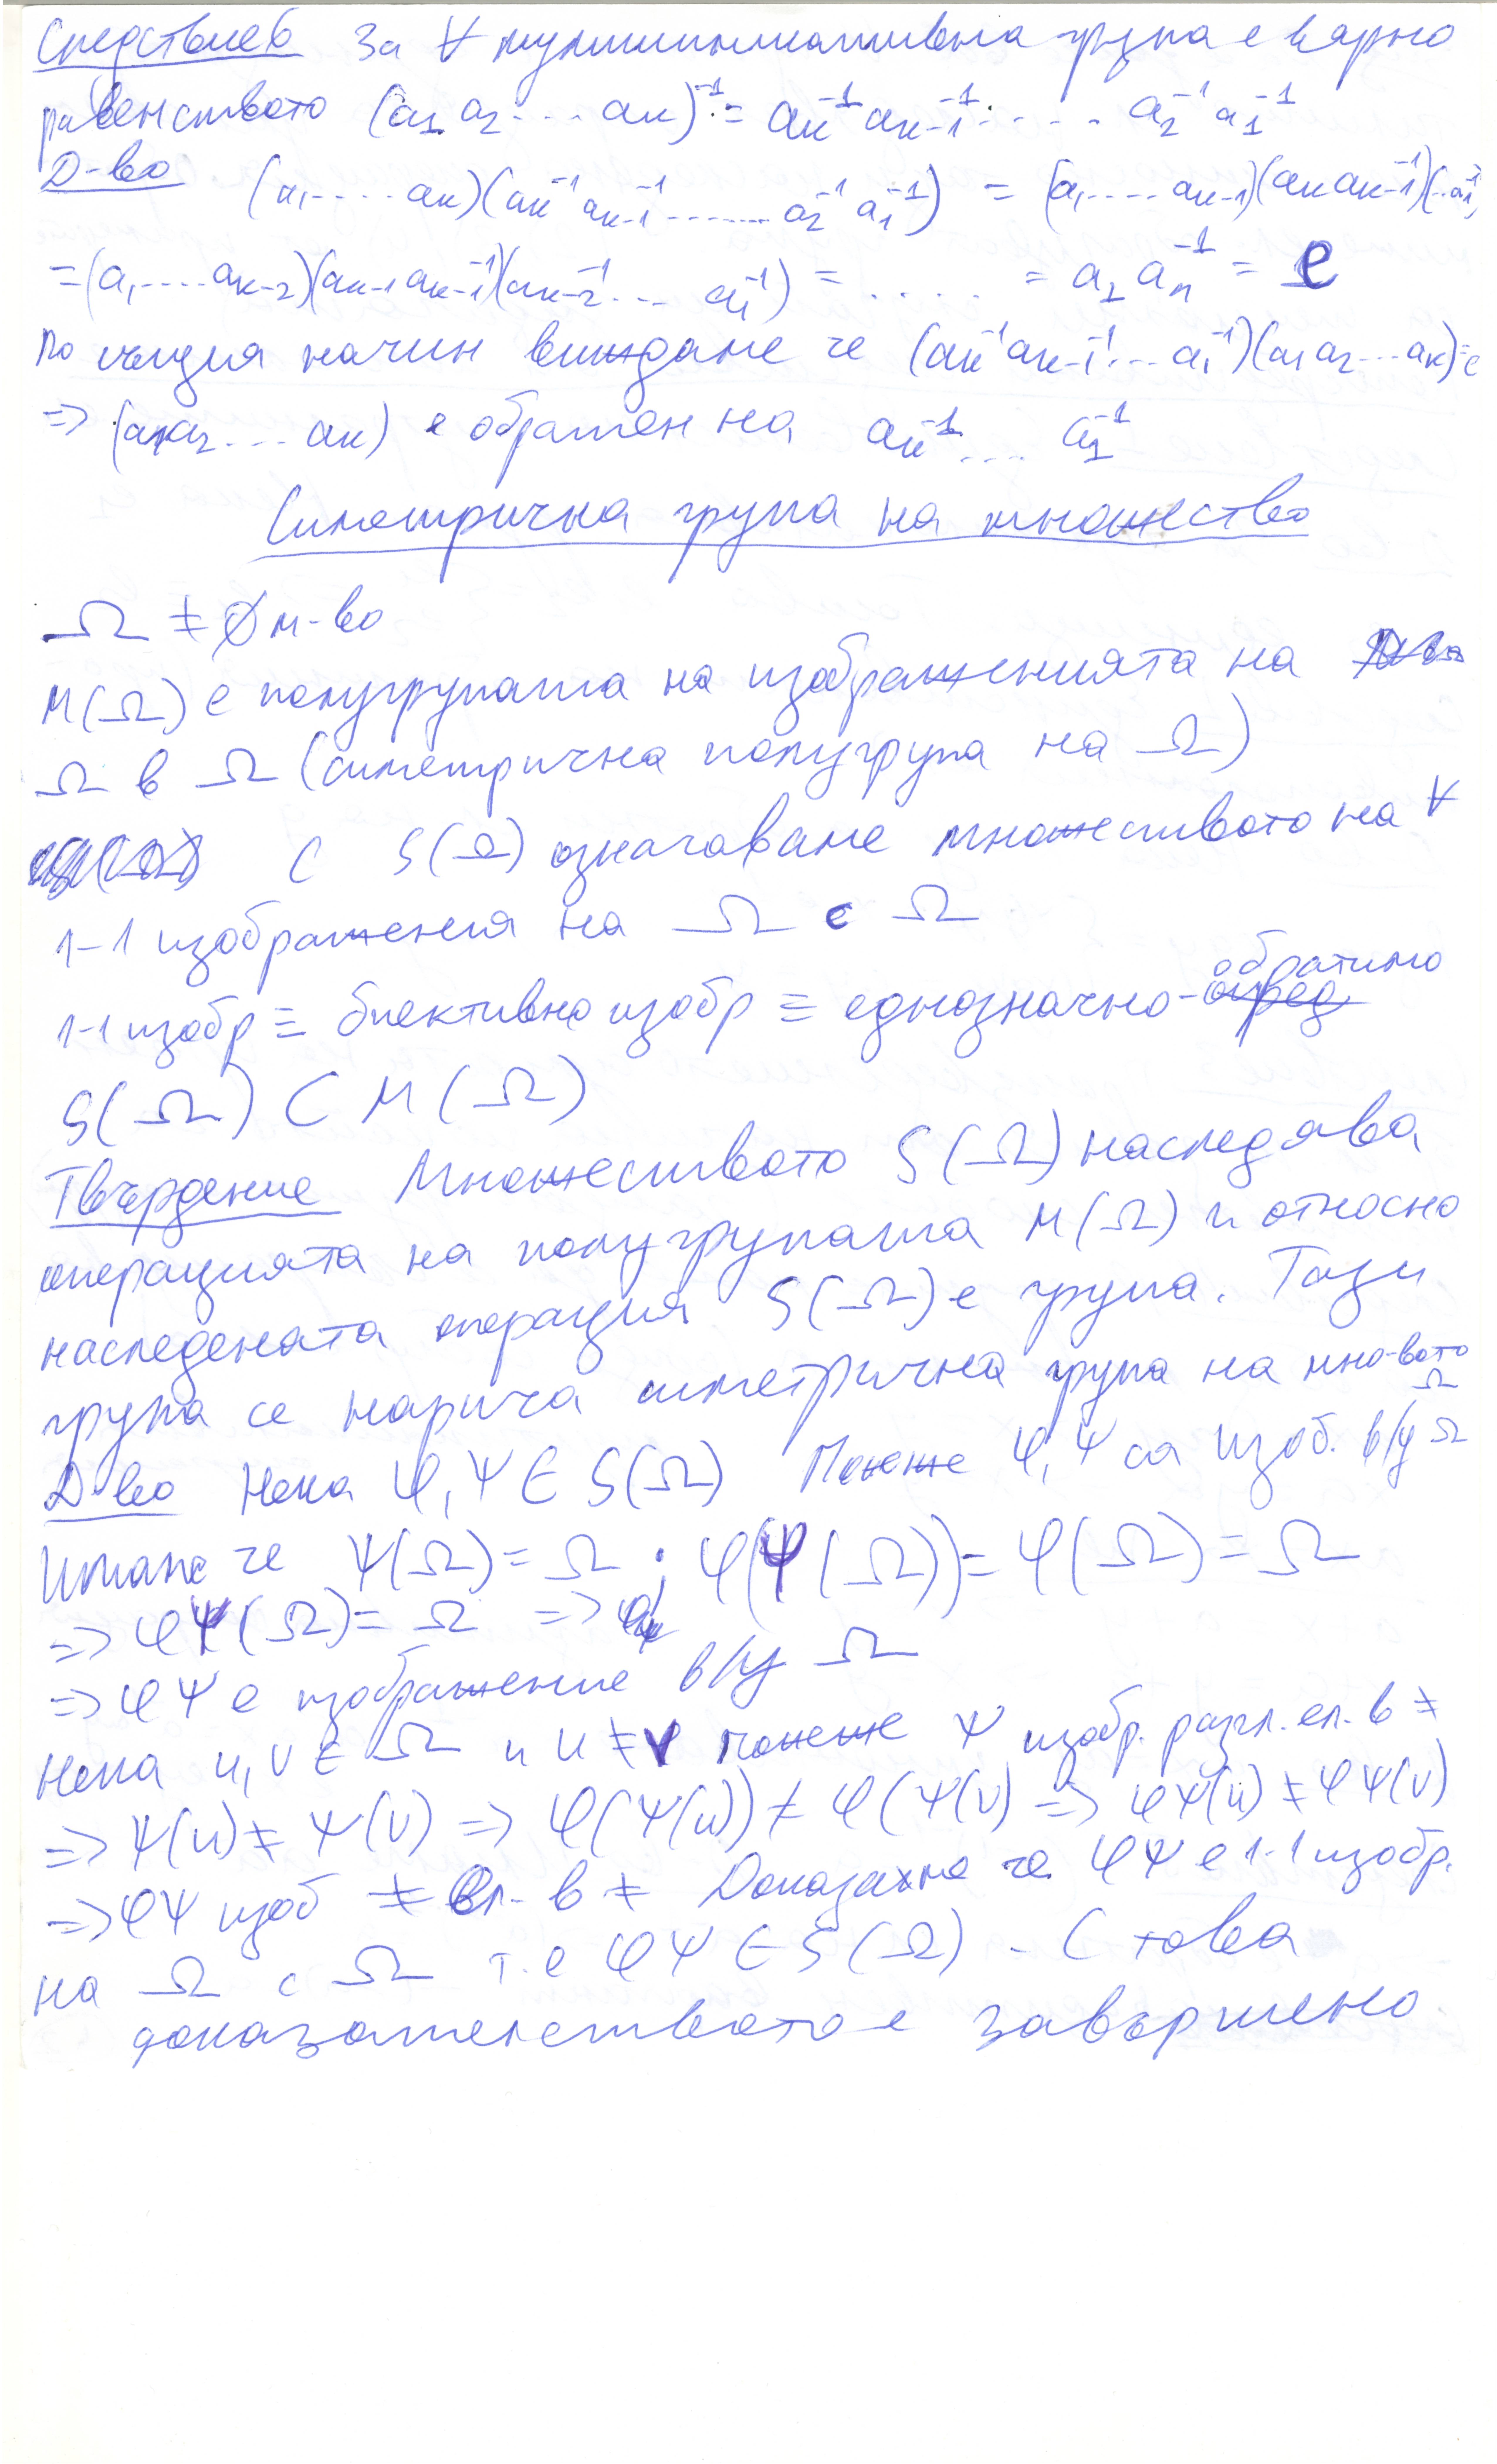 Следствие 6 За ∀ мултипликативна група е вярно
равенството (a₁ a₂ .... aₖ)⁻¹ = aₖ⁻¹ aₖ₋₁⁻¹ ..... a₂⁻¹ a₁⁻¹
Д-во (a₁ .... aₖ)(aₖ⁻¹ aₖ₋₁⁻¹ ....... a₂⁻¹ a₁⁻¹) = (a₁ .... aₖ₋₁)(aₖ aₖ⁻¹)(.. a₁⁻¹)
= (a₁ .... aₖ₋₂)(aₖ₋₁ aₖ₋₁⁻¹)(aₖ₋₂⁻¹ ... a₁⁻¹) = ..... = a₁ a₁⁻¹ = e
По същия начин виждаме че (aₖ⁻¹ aₖ₋₁⁻¹ ... a₁⁻¹)(a₁ a₂ ... aₖ) = e
=> (a₁ a₂ ... aₖ) е обратен на aₖ⁻¹ .... a₁⁻¹
Симетрична група на множество
Ω ≠ ∅ м-во
M(Ω) е полугрупата на изображенията на
Ω в Ω (симетрична полугрупа на Ω)
С S(Ω) означаваме множеството на ∀
1-1 изображения на Ω с Ω
1-1 изобр ≡ биективно изобр ≡ еднозначно-обратимо
S(Ω) ⊂ M(Ω)
Твърдение Множеството S(Ω) наследява
операцията на полугрупата M(Ω) и относно
наследената операция S(Ω) е група. Тази
група се нарича симетрична група на мно-вото Ω
Д-во Нека φ, ψ ∈ S(Ω) Понеже φ, ψ са изоб. в/у Ω
Имаме че ψ(Ω) = Ω ; φ(ψ(Ω)) = φ(Ω) = Ω
=> φψ(Ω) = Ω =>
=> φψ е изображение в/у Ω
Нека u, v ∈ Ω и u ≠ v понеже ψ изобр. разл. ел. в ≠
=> ψ(u) ≠ ψ(v) => φ(ψ(u)) ≠ φ(ψ(v) => φψ(u) ≠ φψ(v)
=> φψ изоб ≠ ел. в ≠ Доказахме че φψ е 1-1 изобр.
на Ω с Ω т.е φψ ∈ S(Ω) . С това
доказателството е завършено